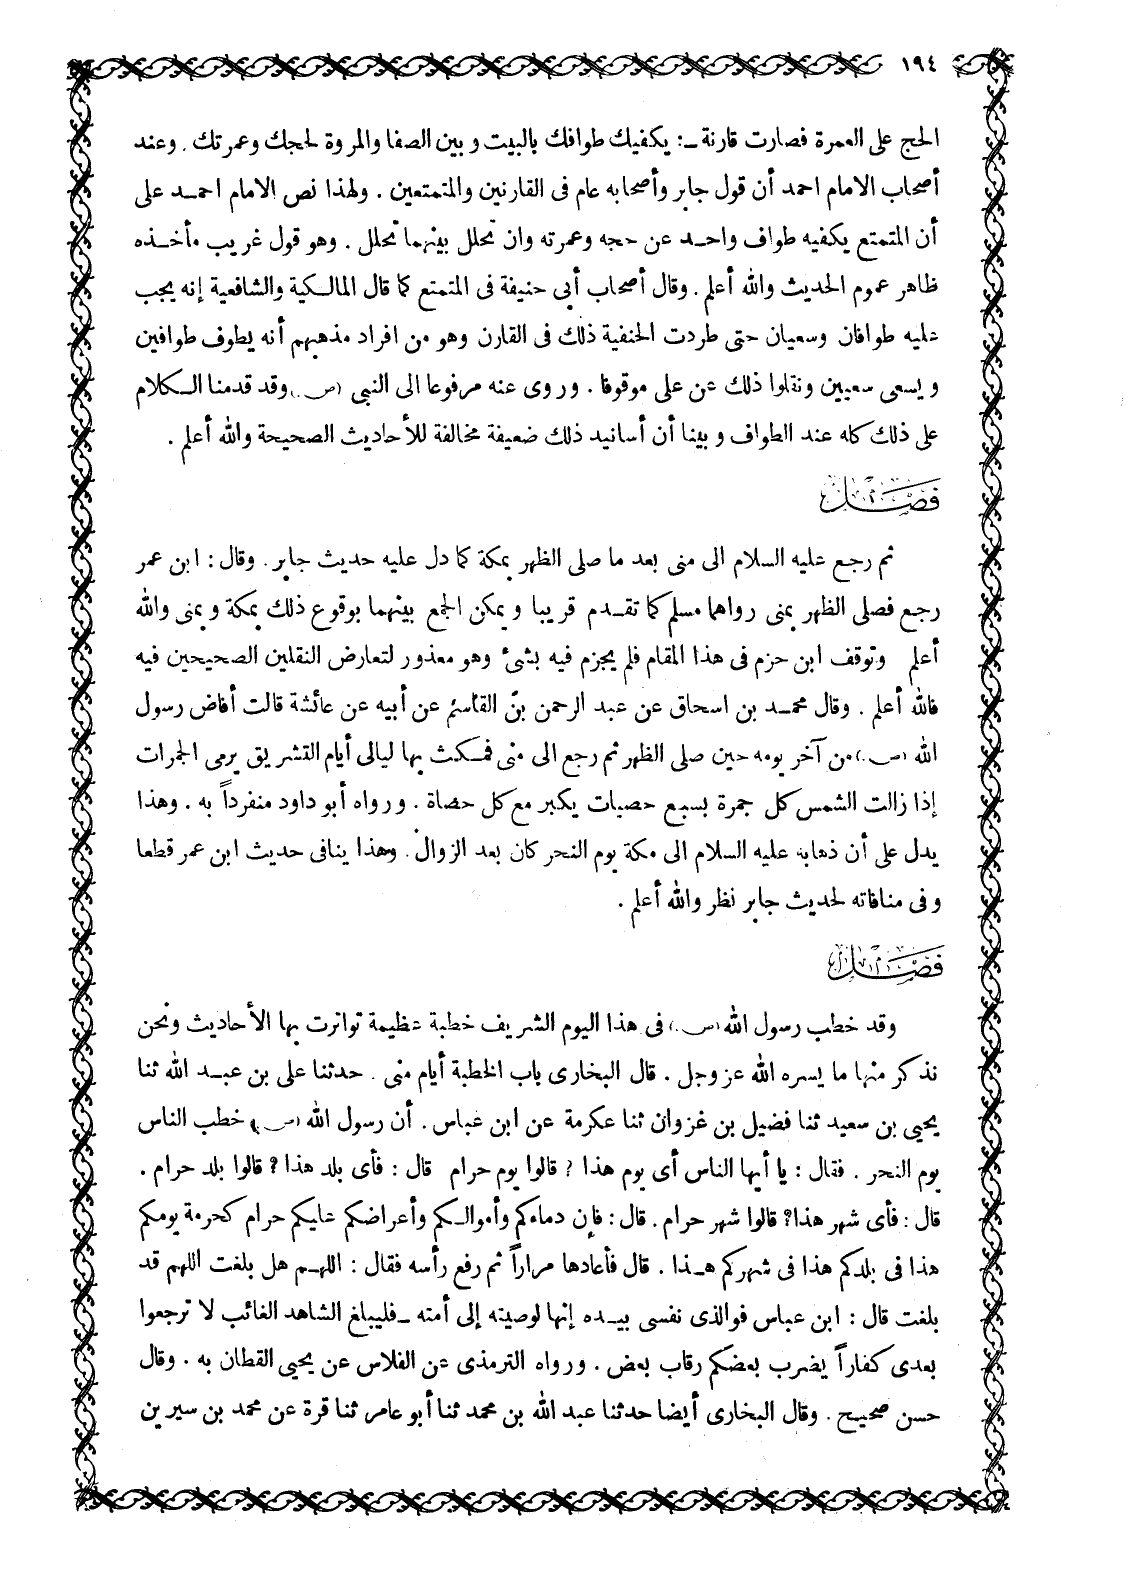 ١٩٤
الحج على العمرة فصارت قارنة ــ: يكفيك طوافك بالبيت وبين الصفا والمروة لحجك وعمرتك . وعند
أصحاب الامام احمد أن قول جابر وأصحابه عام فى القارنين والمتمتعين . ولهذا نص الامام احمد على
أن المتمتع يكفيه طواف واحد عن حجه وعمرته وان تحلل بينهما تحلل . وهو قول غريب مأخذه
ظاهر عموم الحديث والله أعلم . وقال أصحاب أبى حنيفة فى المتمتع كما قال المالكية والشافعية إنه يجب
عليه طوافان وسعيان حتى طردت الحنفية ذلك فى القارن وهو من افراد مذهبهم أنه يطوف طوافين
ويسعى سعيين ونقلوا ذلك عن على موقوفا . وروى عنه مرفوعا الى النبى (ص.) وقد قدمنا الكلام
على ذلك كله عند الطواف وبينا أن أسانيد ذلك ضعيفة مخالفة للأحاديث الصحيحة والله أعلم .
فصل
ثم رجع عليه السلام الى منى بعد ما صلى الظهر بمكة كما دل عليه حديث جابر . وقال : ابن عمر
رجع فصلى الظهر بمنى رواهما مسلم كما تقدم قريبا ويمكن الجمع بينهما بوقوع ذلك بمكة وبمنى والله
أعلم وتوقف ابن حزم فى هذا المقام فلم يجزم فيه بشىء وهو معذور لتعارض النقلين الصحيحين فيه
فالله أعلم . وقال محمد بن اسحاق عن عبد الرحمن بن القاسم عن أبيه عن عائشة قالت أفاض رسول
الله (ص.) من آخر يومه حين صلى الظهر ثم رجع الى منى فمكث بها ليالى أيام التشريق يرمى الجمرات
إذا زالت الشمس كل جمرة بسبع حصيات يكبر مع كل حصاة . ورواه أبو داود منفرداً به . وهذا
يدل على أن ذهابه عليه السلام الى مكة يوم النحر كان بعد الزوال . وهذا ينافى حديث ابن عمر قطعا
وفى منافاته لحديث جابر نظر والله أعلم .
فصل
وقد خطب رسول الله (ص.) فى هذا اليوم الشريف خطبة عظيمة تواترت بها الأحاديث ونحن
نذكر منها ما يسره الله عز وجل . قال البخارى باب الخطبة أيام منى . حدثنا على بن عبد الله ثنا
يحيى بن سعيد ثنا فضيل بن غزوان ثنا عكرمة عن ابن عباس . أن رسول الله (ص.) خطب الناس
يوم النحر . فقال : يا أيها الناس أى يوم هذا ؟ قالوا يوم حرام قال : فأى بلد هذا ؟ قالوا بلد حرام .
قال : فأى شهر هذا؟ قالوا شهر حرام . قال : فإن دماءكم وأموالكم وأعراضكم عليكم حرام كحرمة يومكم
هذا فى بلدكم هذا فى شهركم هذا . قال فأعادها مراراً ثم رفع رأسه فقال : اللهم هل بلغت اللهم قد
بلغت قال : ابن عباس فوالذى نفسى بيده إنها لوصيته إلى أمته ــ فليبلغ الشاهد الغائب لا ترجعوا
بعدى كفاراً يضرب بعضكم رقاب بعض . ورواه الترمذى عن الفلاس عن يحيى القطان به . وقال
حسن صحيح . وقال البخارى أيضا حدثنا عبد الله بن محمد ثنا أبو عامر ثنا قرة عن محمد بن سيرين